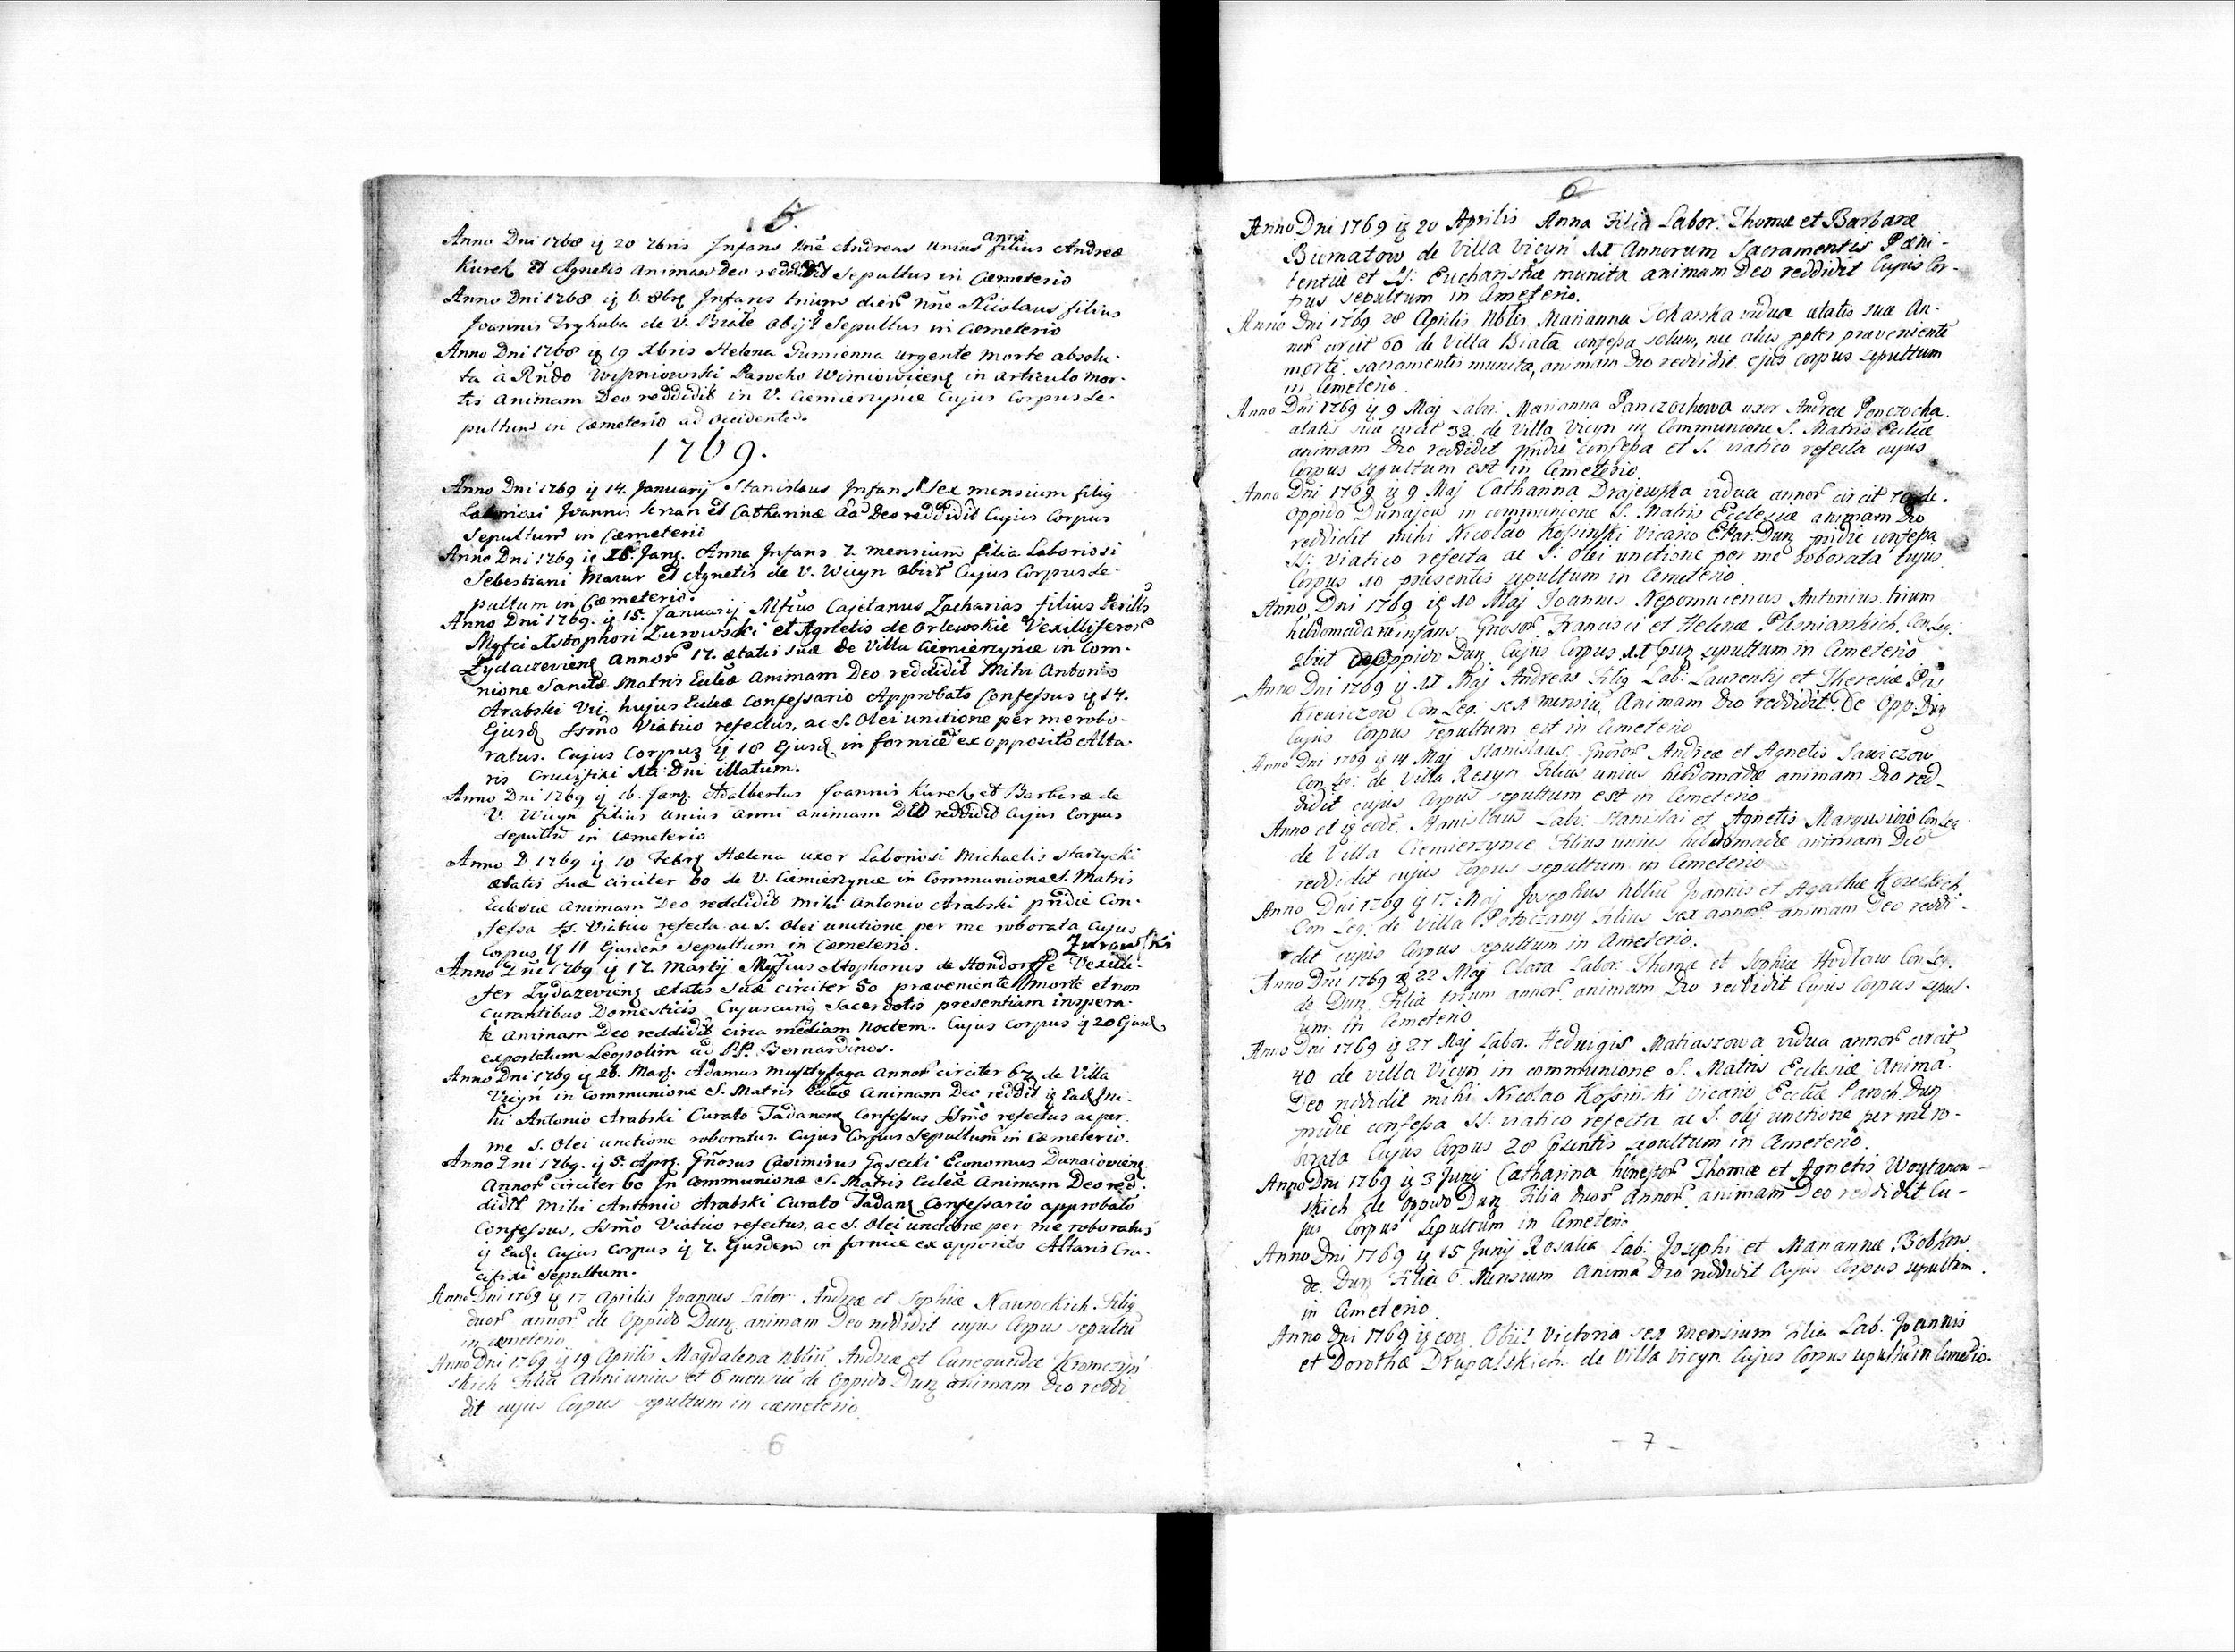 5.
Anno Dni 1768 ig 20 7bris Infans nne Andreas unius anni filius Andreæ
Kurek et Agnetis animam Deo reddidit Sepultus in Cæmeterio
Anno Dni 1768 ig 6. 8brz Infans trium dier nne Nicolaus filius
Joannis Tryhuba de V. Biale obijt Sepultus in Cæmeterio
Anno Dni 1768 ig 19 Xbris Helena Gumienna urgente morte absolu-
ta à Rndo Wisniowski Parocho Wisniowicenz in articulo mor-
tis animam Deo reddidit in V. Ciemierzynce Cujus Corpus Se-
pultum in Cæmeterio ad occidentem.
1769.
Anno Dni 1769 ig 14. Januarij Stanislaus Infans Sex mensium filig
Laboriosi Joannis et Catharinæ aa Deo reddidit Cujus Corpus
Sepultum in Cæmeterio
Anno Dni 1769 ig 18. Janz. Anna Infans 7. mensium filia Laboriosi
Sebestiani Mazur et Agnetis de V. Wicyn obiit Cujus Corpus Se-
pultum in Cæmeterio.
Anno Dni 1769. ig 15. Januarij Mfcus Cajetanus Zacharias filius Perills
Mgfci Xstophori Zurowski et Agnetis de Orlewskie Vexilliferor
Zydaczeviens Annor 17. ætatis suæ de Villa Ciemierzynce in Com-
nione Sanctæ Matris Ecclæ animam Deo reddidit Mihi Antonio
Arabski Vic. hujus Ecclæ Confessario Approbato Confessus ig 14.
Ejusd. Ssmo Viatico refectus, ac S. Olei unctione per me robo-
ratus. Cujus Corpus ig 18 Ejusd in fornice ex opposito Alta-
ris Crucifixi Xti Dni illatum.
Anno Dni 1769 ig 16. Janz. Adalbertus Joannis Kurek et Barbaræ de
V. Wicyn filius unius anni animam DEO reddidit Cujus Corpus
Sepultu in Cæmeterio
Anno D 1769 ig 10 Febrz Hælena uxor Laboriosi Michaelis Starzycki
ætatis suæ circiter 60 de V. Ciemierzynce in Communione S. Matris
Eclesiæ animam Deo reddidit mihi Antonio Arabski pridie Con-
fessa Ss. Viatico refecta ac S. Olei unctione per me roborata Cujus
Corpus ig 11 Ejusdem Sepultum in Cæmeterio. Zurowski
Anno Dni 1769 ig 17. Martij Mgfcus Xtophorus de Hondorffe Vexilli-
fer Zydazeviens ætatis suæ circiter 50 præveniente morte et non
curantibus Domesticis Cujuscunq Sacerdotis presentiam inspera-
te animam Deo reddidit circa mediam noctem. Cujus corpus ig 20 Ejusd
exportatum Leopolim ad PP. Bernardinos.
Anno Dni 1769 ig 26. Marz. Adamus Mustyfaga annor circiter 67 de Villa
Vicyn in Communione S. Matris Ecclæ Animam Deo reddit ig Ead. Mi-
hi Antonio Arabski Curato Tadanenz Confessus Ssmo refectus ac per
me S. Olei unctione roboratus. Cujus Corpus Sepultum in Cæmeterio.
Anno Dni 1769. ig 5. Aprz. Gnosus Casimirus Gąsecki Economus Dunaiovienz.
Annor circiter 60 In Communione S. Matris Ecclæ Animam Deo red-
didit Mihi Antonio Arabski Curato Tadanz Confessario approbato
Confessus, Ssmo Viatico refectus, ac S. Olei unctione per me roboratus
ig Ead. Cujus Corpus ig 7. Ejusdem in fornice ex opposito Altaris Cru-
cifixi Sepultum.
Anno Dni 1769 ig 17 Aprilis Joannes Labor: Andreæ et Sophiæ Nawrockich Filig
duor annor de Oppido Dunz animam Deo reddidit cujus Corpus sepultu
in cæmeterio
Anno Dni 1769 ig 19 Aprilis Magdalena Nbliu Andreæ et Cunegundæ Kromczyn
skich Filia Anni unius et 6 mensiu de Oppido Dunz animam Deo reddi
dit cujus Corpus sepultum in cæmeterio
6
6
Anno Dni 1769 ig 20 Aprilis Anna Filia Labor: Thomæ et Barbaræ
Biernatow de Villa Vicyn 11 Annorum Sacramentis Pæni-
tentiæ et SS: Eucharistiæ munita animam Deo reddidit Cujus Cor-
pus sepultum in Cmeterio.
Anno Dni 1769 28 Aprilis Nblis Marianna Tokarska vidua ætatis suæ An-
nor circit 60 de Villa Biała confessa solum, nec aliis ppter praveniente
morte sacramentis munita, animam Deo reddidit ejus corpus sepultum
in Cmeterio.
Anno Dni 1769 ig 9 Maj Labor: Marianna Panczochowa uxor Andreæ Ponczocha.
ætatis suæ circit 32 de Villa Vicyn in Communione S. Matris Eccliæ
animam Deo reddidit pridie confessa et S. viatico refecta cujus
Corpus sepultum est in Cemeterio
Anno Dni 1769 ig 9 Maj Catharina Drajewska vidua annor circit 70 de.
Oppido Dunajow in communione S. Matris Ecclesiæ animam Deo
reddidit mihi Nicolao Kossinski Vicario E. Par. Dunz pridie confessa
SS: viatico refecta ac S: olei unctione per me roborata cujus
Corpus 10 præsentis sepultum in Cemeterio.
Anno Dni 1769 ig 10 Maj Joannes Nepomucenus Antonius trium
hebdomadarum infans Gnosor Francisci et Helenæ Plesniarskich Con Leg:
obiit de Oppido Dunz Cujus Corpus 11 sepultum in Cimeterio
Anno Dni 1769 ig 11 Maj Andreas Filig Lab: Laurentij et Theresiæ Pas
kiewiczow Con Leg: sex mensiu, Animam Deo reddidit. De Opp. Dunz
Cujus Corpus Sepultum est in Cimeterio
Anno Dni 1769 ig 14 Maj Stanislaus Gnosor Andreæ et Agnetis Sawiczow
Con Leg: de Villa Rekszyn Filius unius hebdomadæ animam Deo red-
didit cujus Corpus sepultum est in Cemeterio
Anno et ig eode. Stanislaus Labor: Stanislai et Agnetis Con Leg
de Villa Ciemierzynce Filius unius hebdomadæ animam Deo
reddidit cujus Corpus sepultum in Cimeterio
Anno Dni 1769 ig 17 Maj Josephus Nbliu Joannis et Agathæ
Con Leg: de Villa Potoczany Filius sex annor animam Deo reddi-
dit cujus Corpus sepultum in Cmeterio.
Anno Dni 1769 ig 22 Maj Clara Labor: Thomæ et Sophiæ Hodlow Con Leg:
de Dunz Filia trium annor. animam Deo reddidit Cujus Corpus sepul-
tum in Cemeterio
Anno Dni 1769 ig 27 Maj Labor. Hedvigis Matiaszowa vidua annor circit
40 de villa Vicyn in communione S. Matris Ecclesiæ Anima.
Deo reddidit mihi Nicolao Kossinski vicario Eccliæ Paroch. Dunz
pridie confessa SS: viatico refecta ac S. olej unctione per me ro-
borata Cujus Corpus 28 Presentis sepultum in Cmeterio.
Anno Dni 1769 ig 3 Junij Catharina honestor Thomæ et Agnetis Woytanow-
skich de Oppido Dunz Filia duor Annor. animam Deo reddidit Cu-
jus Corpus Sepultum in Cemeterio
Anno Dni 1769 ig 15 Junij Rosalia Lab: Josephi et Mariannæ Bobkow
de. Dunz Filia 6 Mensium Anima Deo reddidit Cujus Corpus sepultum.
in Cmeterio.
Anno Dni 1769 ig eoz. Obiit Victoria sex mensium Filia Lab. Joannis
et Dorothæ Drupalskich. de Villa Vicyn. Cujus Corpus sepultu in Cmeterio.
- 7 -